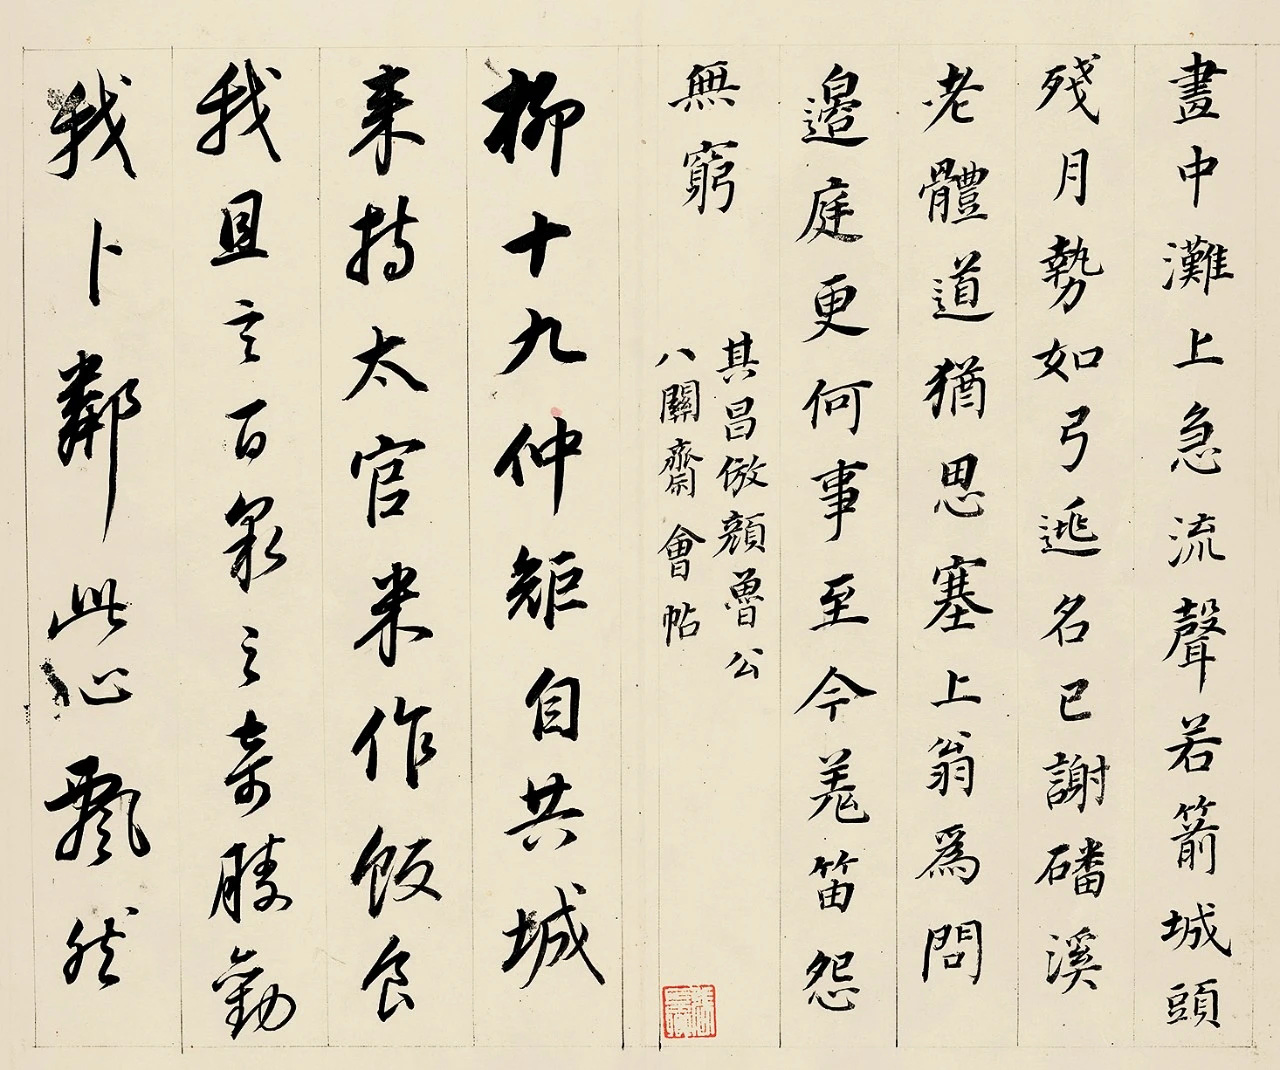 畫中灘上急流聲若箭城頭
殘月勢如弓逃名已謝磻溪
老體道猶思塞上翁為問
邉庭更何事至今羗笛怨
無窮
其昌倣顏魯公
八關齋會帖
柳十九仲矩自共城
来持太官米作飯食
我且言百泉之奇勝勸
我卜鄰此心飄然